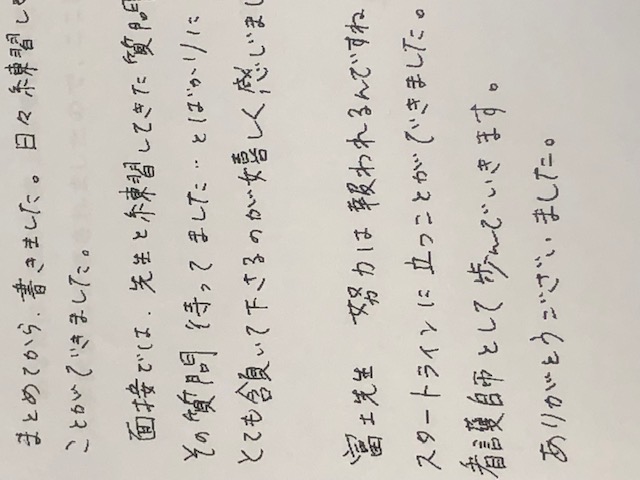 まとめてから、書きました。日々練習して
ことができました。
面接では、先生と練習してきた質問
その質問 待ってました…とばかりに
とても頷いて下さるのが嬉しく感じまし
富士先生 努力は報われるんですね
スタートラインに立つことができました。
看護師として歩んでいきます。
ありがとうございました。